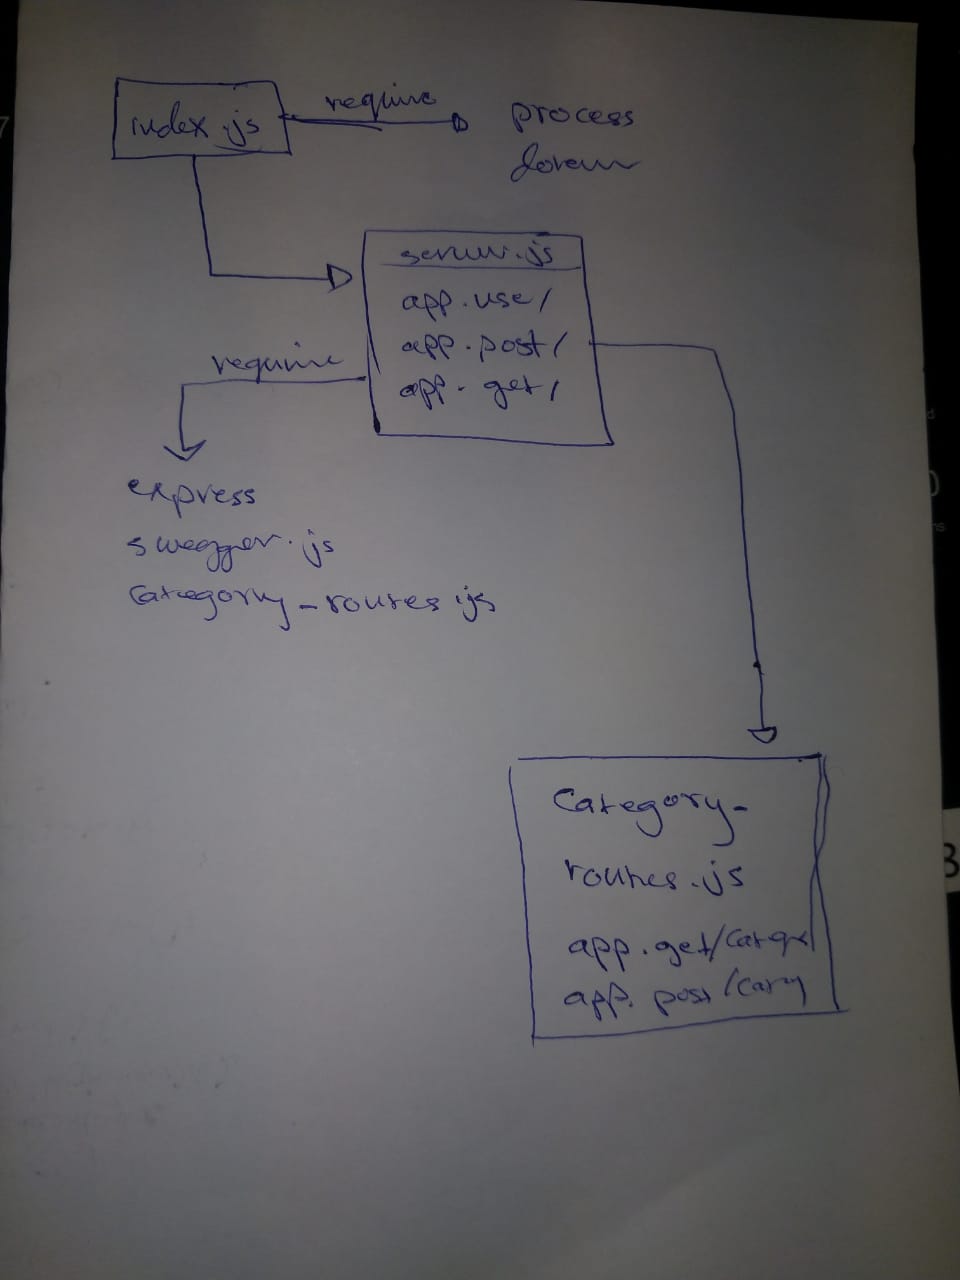 index.js
require
process
server.js
app.use/
app.post/
app.get/
require
express
swegger.js
category_routes.js
Category_
routes.js
app.get/
app.post/